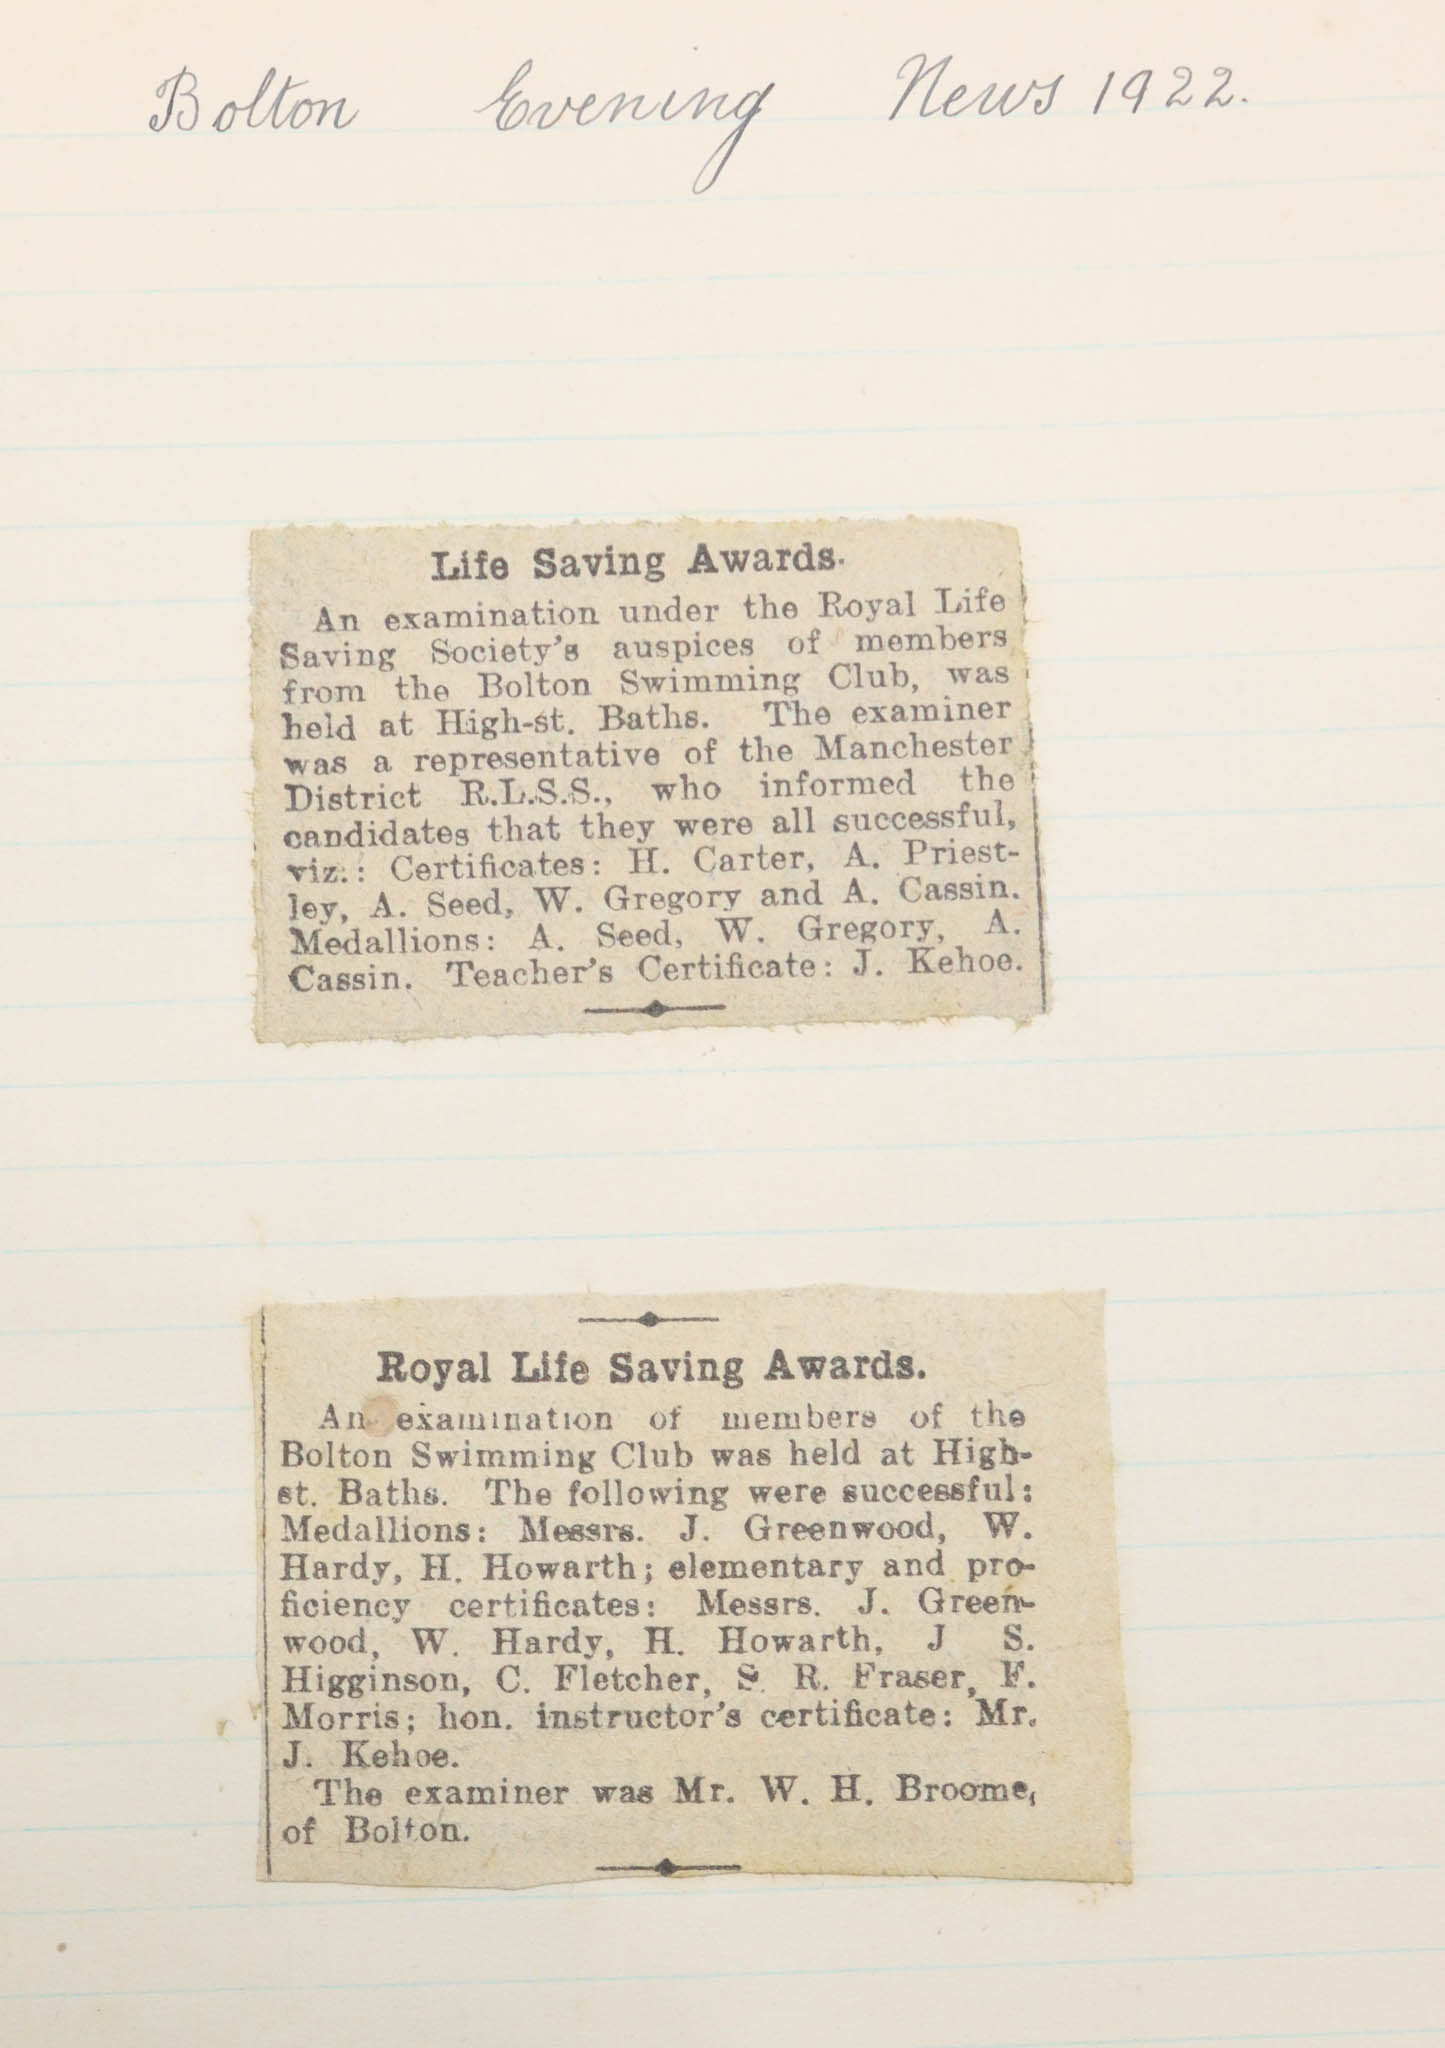 Bolton Evening News 1922.
Life Saving Awards.
An examination under the Royal Life
Saving Society's auspices of members
from the Bolton Swimming Club, was
held at High-st. Baths. The examiner
was a representative of the Manchester
District R.L.S.S., who informed the
candidates that they were all successful,
viz.: Certificates: H. Carter, A. Priest-
ley, A. Seed, W. Gregory and A. Cassin.
Medallions: A. Seed, W. Gregory, A.
Cassin. Teacher's Certificate: J. Kehoe.
Royal Life Saving Awards.
An examination of members of the
Bolton Swimming Club was held at High-
st. Baths. The following were successful:
Medallions: Messrs. J. Greenwood, W.
Hardy, H. Howarth; elementary and pro-
ficiency certificates: Messrs. J. Green-
wood, W. Hardy, H. Howarth, J S.
Higginson, C. Fletcher, S. R. Fraser, F.
Morris; hon. instructor's certificate: Mr.
J. Kehoe.
The examiner was Mr. W. H. Broome,
of Bolton.